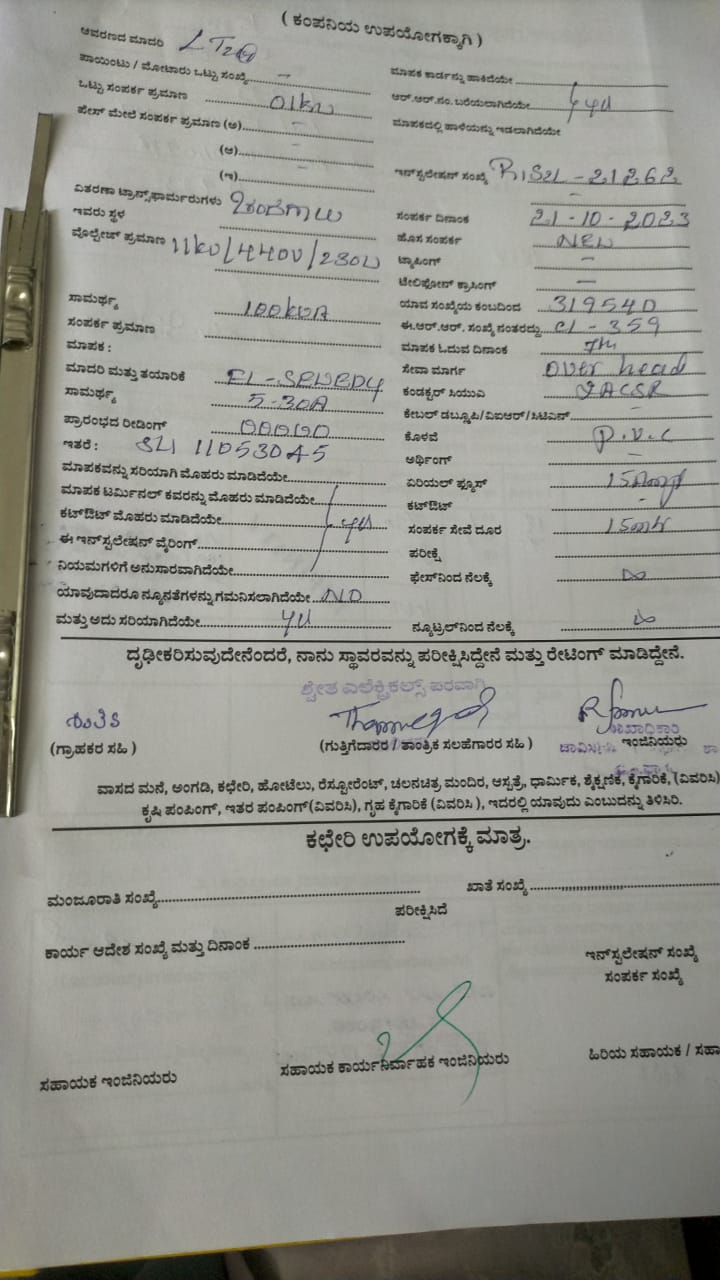 ( ಕಂಪನಿಯ ಉಪಯೋಗಕ್ಕಾಗಿ )
ಆವರಣದ ಮಾದರಿ LT2
ಪಾಯಿಂಟು / ಮೋಟಾರು ಒಟ್ಟು ಸಂಖ್ಯೆ -
ಒಟ್ಟು ಸಂಪರ್ಕ ಪ್ರಮಾಣ 01kw
ಫೇಸ್ ಮೇಲೆ ಸಂಪರ್ಕ ಪ್ರಮಾಣ (ಅ) -
(ಆ) -
(ಇ) -
ವಿತರಣಾ ಟ್ರಾನ್ಸ್‌ಫಾರ್ಮರುಗಳು
ಇವರು ಸ್ಥಳ
ವೊಲ್ಟೇಜ್ ಪ್ರಮಾಣ 11kv/440v/230v
ಸಾಮರ್ಥ್ಯ 100kVA
ಸಂಪರ್ಕ ಪ್ರಮಾಣ
ಮಾಪಕ :
ಮಾದರಿ ಮತ್ತು ತಯಾರಿಕೆ
ಸಾಮರ್ಥ್ಯ 5-30A
ಪ್ರಾರಂಭದ ರೀಡಿಂಗ್ 00000
ಇತರೆ : 11053045
ಮಾಪಕವನ್ನು ಸರಿಯಾಗಿ ಮೊಹರು ಮಾಡಿದೆಯೇ
ಮಾಪಕ ಟರ್ಮಿನಲ್ ಕವರನ್ನು ಮೊಹರು ಮಾಡಿದೆಯೇ
ಕಟ್‌ಔಟ್ ಮೊಹರು ಮಾಡಿದೆಯೇ yes
ಈ ಇನ್‌ಸ್ಟಲೇಷನ್ ವೈರಿಂಗ್
ನಿಯಮಗಳಿಗೆ ಅನುಸಾರವಾಗಿದೆಯೇ
ಯಾವುದಾದರೂ ನ್ಯೂನತೆಗಳನ್ನು ಗಮನಿಸಲಾಗಿದೆಯೇ NO
ಮತ್ತು ಅದು ಸರಿಯಾಗಿದೆಯೇ yes
ಮಾಪಕ ಕಾರ್ಡನ್ನು ಹಾಕಿದೆಯೇ
ಆರ್.ಆರ್.ನಂ. ಬರೆಯಲಾಗಿದೆಯೇ yes
ಮಾಪಕದಲ್ಲಿ ಹಾಳೆಯನ್ನು ಇಡಲಾಗಿದೆಯೇ
ಇನ್‌ಸ್ಟಲೇಷನ್ ಸಂಖ್ಯೆ RISZL-21262
-
ಸಂಪರ್ಕ ದಿನಾಂಕ 21-10-2023
ಹೊಸ ಸಂಪರ್ಕ NEW
ಟ್ಯಾಪಿಂಗ್ -
ಟೆಲಿಫೋನ್ ಕ್ರಾಸಿಂಗ್ -
ಯಾವ ಸಂಖ್ಯೆಯ ಕಂಬದಿಂದ 319540
ಈ.ಆರ್.ಆರ್. ಸಂಖ್ಯೆ ನಂತರದ್ದು CL-359
ಮಾಪಕ ಓದುವ ದಿನಾಂಕ 7th
ಸೇವಾ ಮಾರ್ಗ over head
ಕಂಡಕ್ಟರ್ ಸಿಯುಎ ACSR
ಕೇಬಲ್ ಡಬ್ಲೂಪಿ/ವಿಐಆರ್/ಸಿಟಿಎಸ್ -
ಕೊಳವೆ P.V.C
ಅರ್ಥಿಂಗ್ -
ಏರಿಯಲ್ ಫ್ಯೂಸ್ 15Amp
ಕಟ್‌ಔಟ್ -
ಸಂಪರ್ಕ ಸೇವೆ ದೂರ 15mtr
ಪರೀಕ್ಷೆ
ಫೇಸ್‌ನಿಂದ ನೆಲಕ್ಕೆ ∞
ನ್ಯೂಟ್ರಲ್‌ನಿಂದ ನೆಲಕ್ಕೆ ∞
ದೃಢೀಕರಿಸುವುದೇನೆಂದರೆ, ನಾನು ಸ್ಥಾವರವನ್ನು ಪರೀಕ್ಷಿಸಿದ್ದೇನೆ ಮತ್ತು ರೇಟಿಂಗ್ ಮಾಡಿದ್ದೇನೆ.
ಶ್ವೇತ ಎಲೆಕ್ಟ್ರಿಕಲ್ಸ್ ಪರವಾಗಿ
ಶಾಖಾಧಿಕಾರಿ
(ಗ್ರಾಹಕರ ಸಹಿ ) (ಗುತ್ತಿಗೆದಾರರ / ತಾಂತ್ರಿಕ ಸಲಹೆಗಾರರ ಸಹಿ ) ಇಂಜಿನಿಯರು
ವಾಸದ ಮನೆ, ಅಂಗಡಿ, ಕಛೇರಿ, ಹೋಟೆಲು, ರೆಸ್ಟೋರೆಂಟ್, ಚಲನಚಿತ್ರ ಮಂದಿರ, ಆಸ್ಪತ್ರೆ, ಧಾರ್ಮಿಕ, ಶೈಕ್ಷಣಿಕ, ಕೈಗಾರಿಕೆ, (ವಿವರಿಸಿ)
ಕೃಷಿ ಪಂಪಿಂಗ್, ಇತರ ಪಂಪಿಂಗ್(ವಿವರಿಸಿ), ಗೃಹ ಕೈಗಾರಿಕೆ (ವಿವರಿಸಿ ), ಇದರಲ್ಲಿ ಯಾವುದು ಎಂಬುದನ್ನು ತಿಳಿಸಿರಿ.
ಕಛೇರಿ ಉಪಯೋಗಕ್ಕೆ ಮಾತ್ರ.
ಮಂಜೂರಾತಿ ಸಂಖ್ಯೆ ಖಾತೆ ಸಂಖ್ಯೆ
ಪರೀಕ್ಷಿಸಿದೆ
ಕಾರ್ಯ ಆದೇಶ ಸಂಖ್ಯೆ ಮತ್ತು ದಿನಾಂಕ
ಇನ್‌ಸ್ಟಲೇಷನ್ ಸಂಖ್ಯೆ
ಸಂಪರ್ಕ ಸಂಖ್ಯೆ
ಸಹಾಯಕ ಇಂಜಿನಿಯರು ಸಹಾಯಕ ಕಾರ್ಯನಿರ್ವಾಹಕ ಇಂಜಿನಿಯರು ಹಿರಿಯ ಸಹಾಯಕ / ಸಹಾ